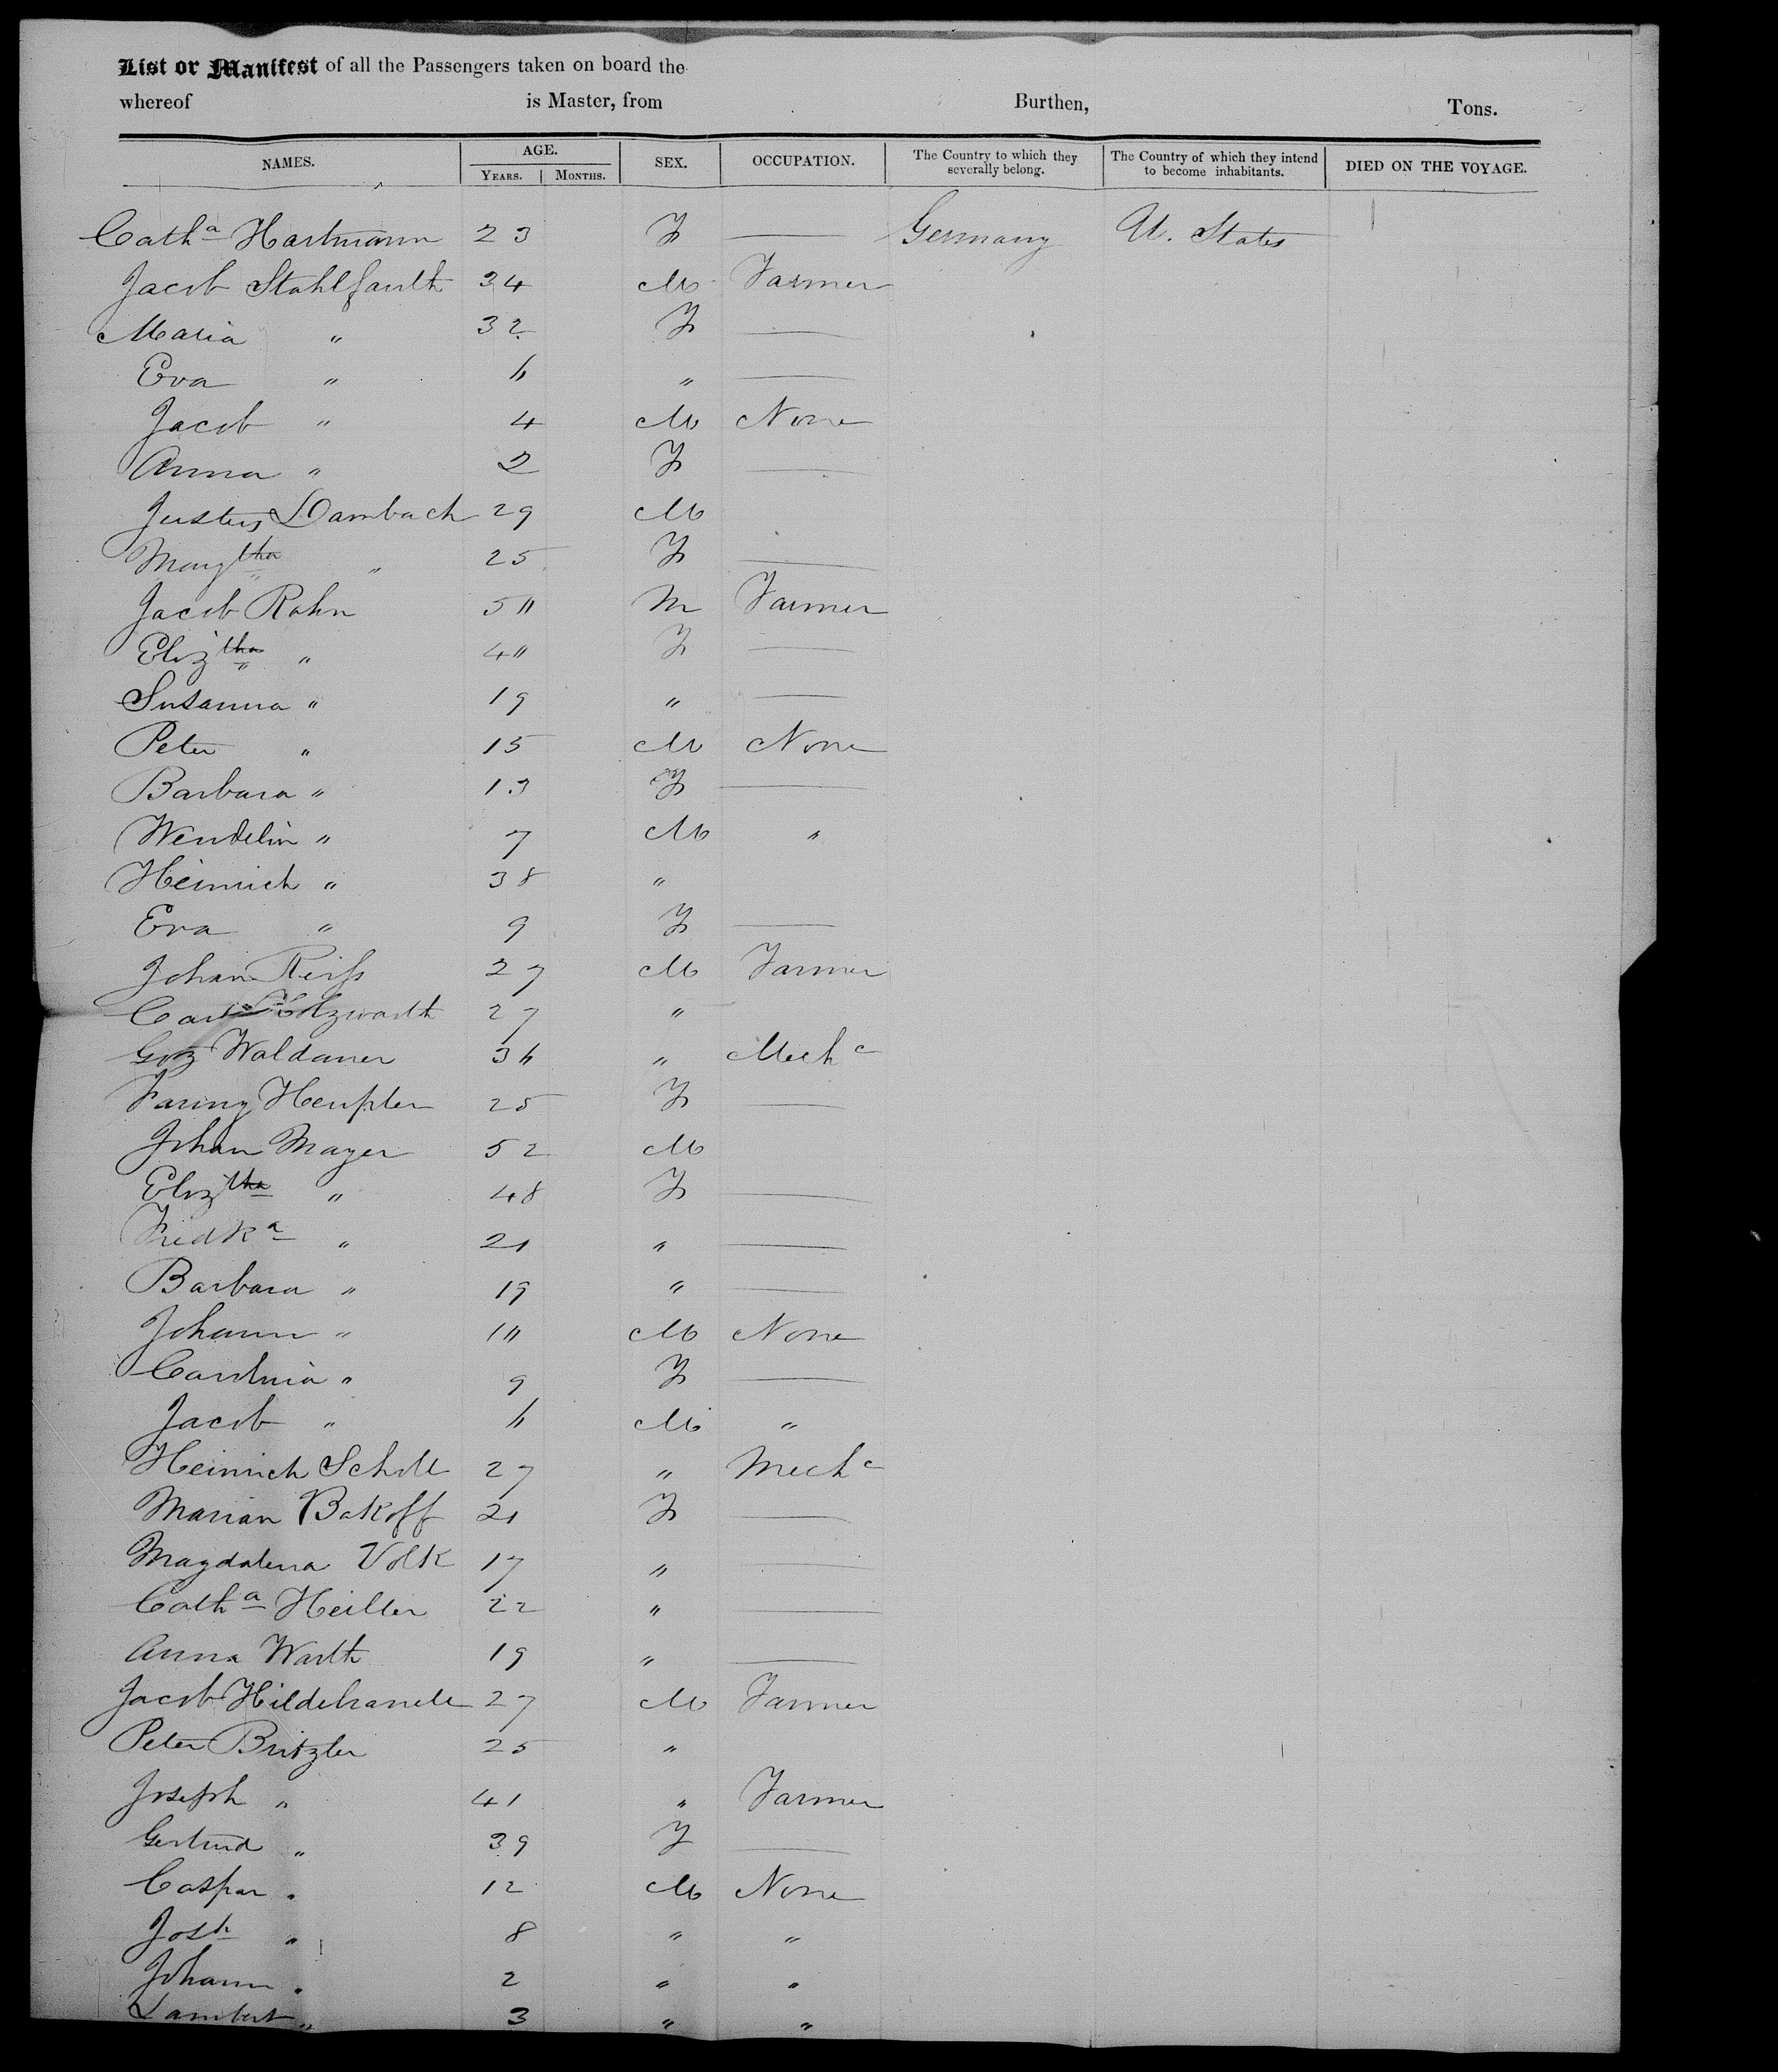 List or Manifest of all the Passengers taken on board the
whereof is Master, from Burthen, Tons.
NAMES. AGE. YEARS. MONTHS. SEX. OCCUPATION. The Country to which they severally belong. The Country of which they intend to become inhabitants. DIED ON THE VOYAGE.
Cath.a Hartmann 23 F — Germany U. States
Jacob Stahlfauth 34 M Farmer
Maria " 32 F —
Eva " 6 " —
Jacob " 4 M None
Anna " 2 F —
Justus Dambach 29 M
Margtha " 25 F —
Jacob Rahn 50 M Farmer
Eliztha " 40 F —
Susanna " 19 " —
Peter " 15 M None
Barbara " 13 F —
Wendelin " 7 M "
Heinrich " 38 "
Eva " 9 F —
Johan Reiss 27 M Farmer
Carl Holzwarth 27 "
Waldauer 36 " Mechc
Fanny 25 F —
Johan Mayer 52 M
Eliztha " 48 F —
Fredka " 21 " —
Barbara " 19 " —
Johann " 10 M None
Carolina " 9 F —
Jacob " 6 M "
Heinrich Scholl 27 " Mechc
Marian Bakoff 21 F —
Magdalena Volk 17 " —
Catha Heiller 22 " —
Anna Warth 19 " —
Jacob Hildebrandt 27 M Farmer
Peter Britzler 25 "
Joseph " 41 " Farmer
Gertrud " 39 F —
Caspar " 12 M None
Josh " 8 " "
Johann " 2 " "
Lambert " 3 " "